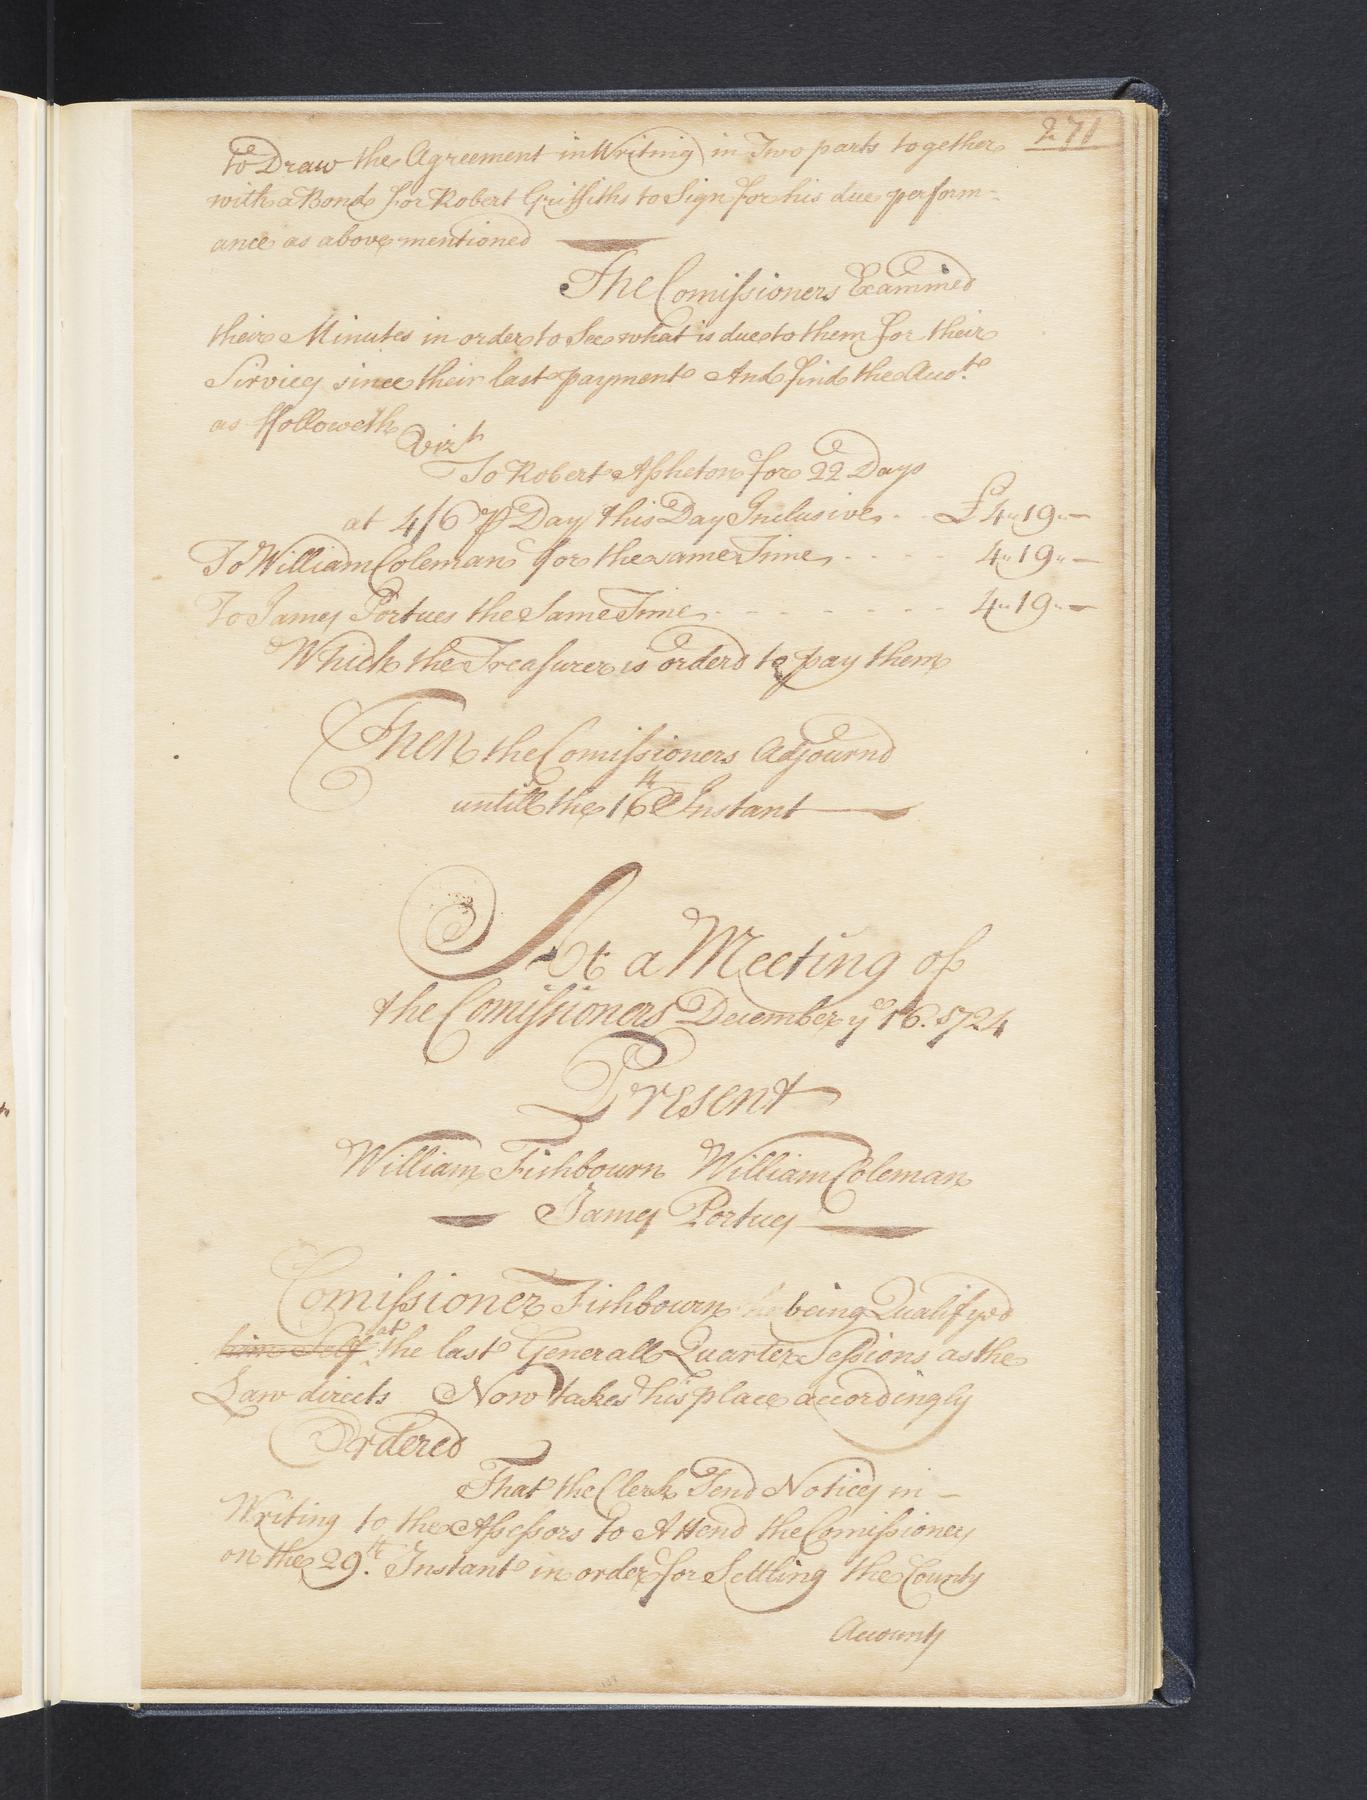 271
to Draw the Agreement in Writing in Two parts together
with a Bond for Robert Griffiths to Sign for his due perform-
ance as above mentioned
The Comissioners Examined
their Minutes in order to See what is due to them for their
Services since their last payment And find the Acco.ts
as ffolloweth Vizt
To Robert Assheton for 22 Days
at 4/6 ⅌ Day this Day Inclusive - - £4"19"—
To William Coleman for the same Time - - - - 4"19"—
To James Portues the Same Time - - - - - - - 4"19"—
Which the Treasurer is orderd to pay them
Then the Comissioners Adjournd
untill the 16th Instant
At a Meeting of
the Comissioners December ye 16. 1724
Present
William Fishbourn William Coleman
James Portues
Comissioner Fishbourn he being Qualifyed
him Self at the last Generall Quarter Sessions as the
Law directs Now takes his place accordingly
Ordered
That the Clerk Send Notices in -
Writing to the Assessors to Attend the Comissioners
on the 29th. Instant in order for Settling the County
Accounts